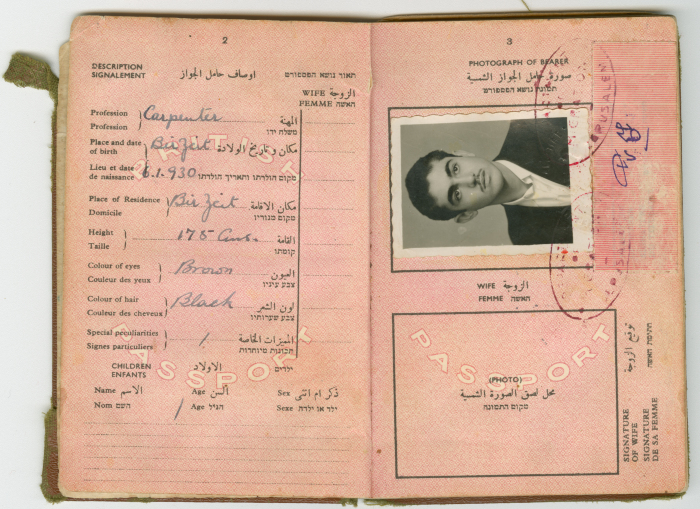 2
DESCRIPTION
SIGNALEMENT
اوصاف حامل الجواز
תאור נושא הפספורט
WIFE الزوجة
FEMME האשה
Profession
Profession
Carpenter
المهنة
משלח ידו
Place and date
of birth
Birzeit
مكان وتاريخ الولادة
Lieu et date
de naissance
6.1.930
מקום הולדתו ותאריך הולדתו
Place of Residence
Domicile
BirZeit
مكان الاقامة
מקום מגוריו
Height
Taille
175 Cms.
القامة
קומתו
Colour of eyes
Couleur des yeux
Brown
العيون
צבע עיניו
Colour of hair
Couleur des cheveux
Black
لون الشعر
צבע שערותיו
Special peculiarities
Signes particuliers
/
المميزات الخاصة
תכונות מיוחדות
PASSPORT
CHILDREN
ENFANTS
الاولاد
ילדים
Name الاسم
Age السن
Sex ذكر ام انثى
Nom השם
/
Age הגיל
Sexe ילד או ילדה
3
PHOTOGRAPH OF BEARER
صورة حامل الجواز الشمسية
תמונת נושא הפספורט
JERUSALEM
WIFE الزوجة
FEMME האשה
PASSPORT
(PHOTO)
محل لصق الصورة الشمسية
מקום התמונה
توقيع الزوجة
חתימת האשה
SIGNATURE
OF WIFE
SIGNATURE
DE SA FEMME